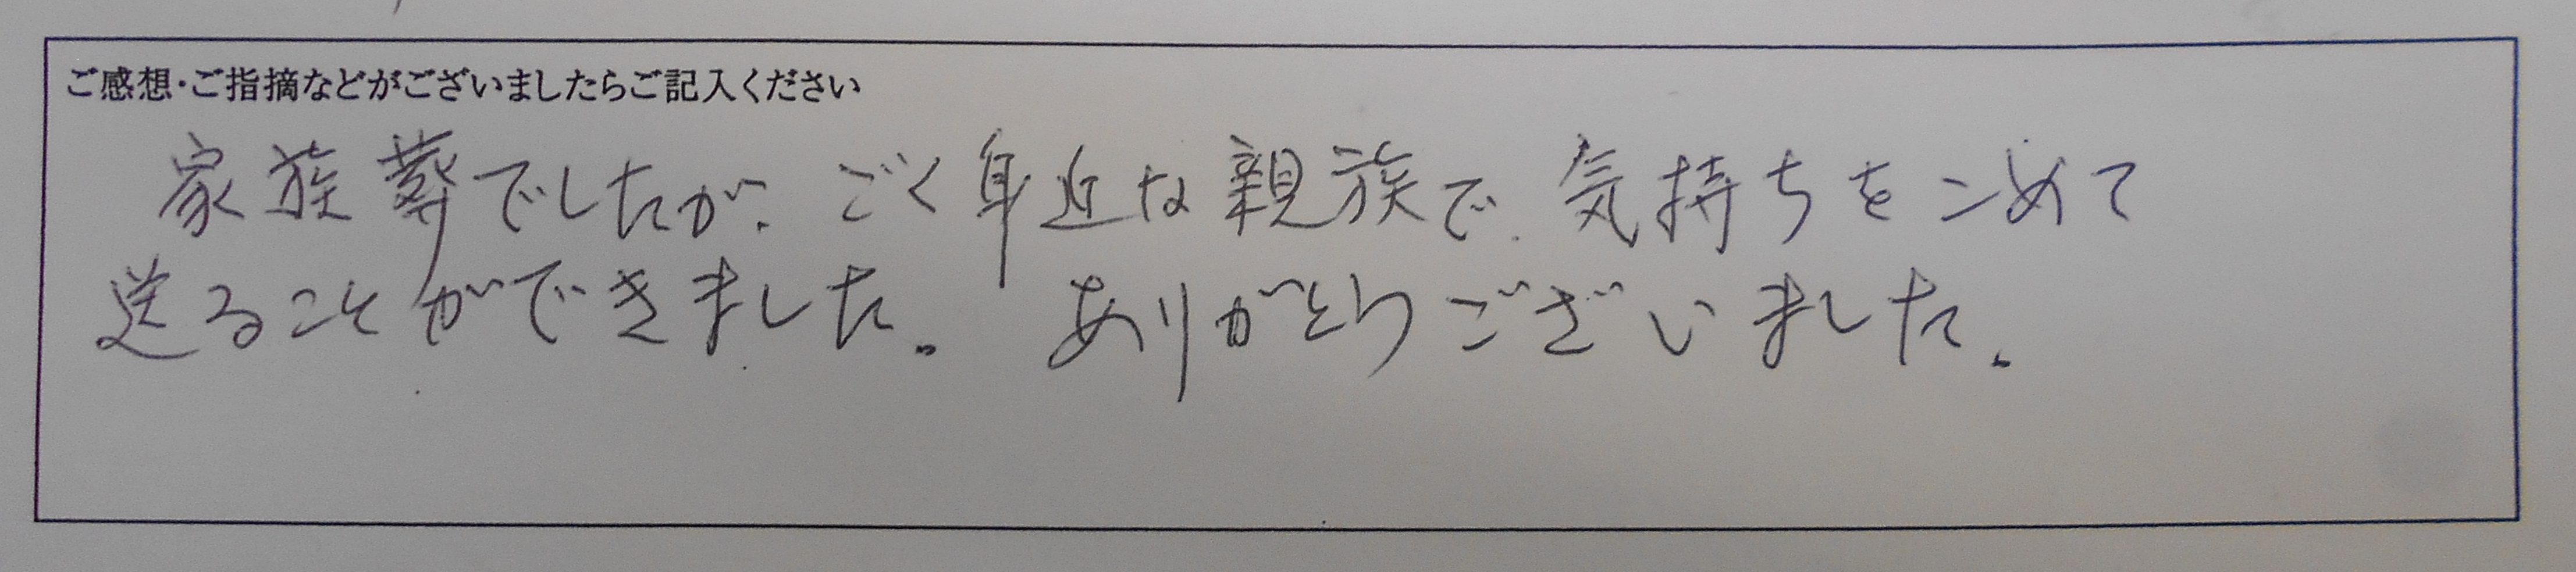 ご感想・ご指摘などがございましたらご記入ください
家族葬でしたが、ごく身近な親族で、気持ちをこめて
送ることができました。 ありがとうございました。